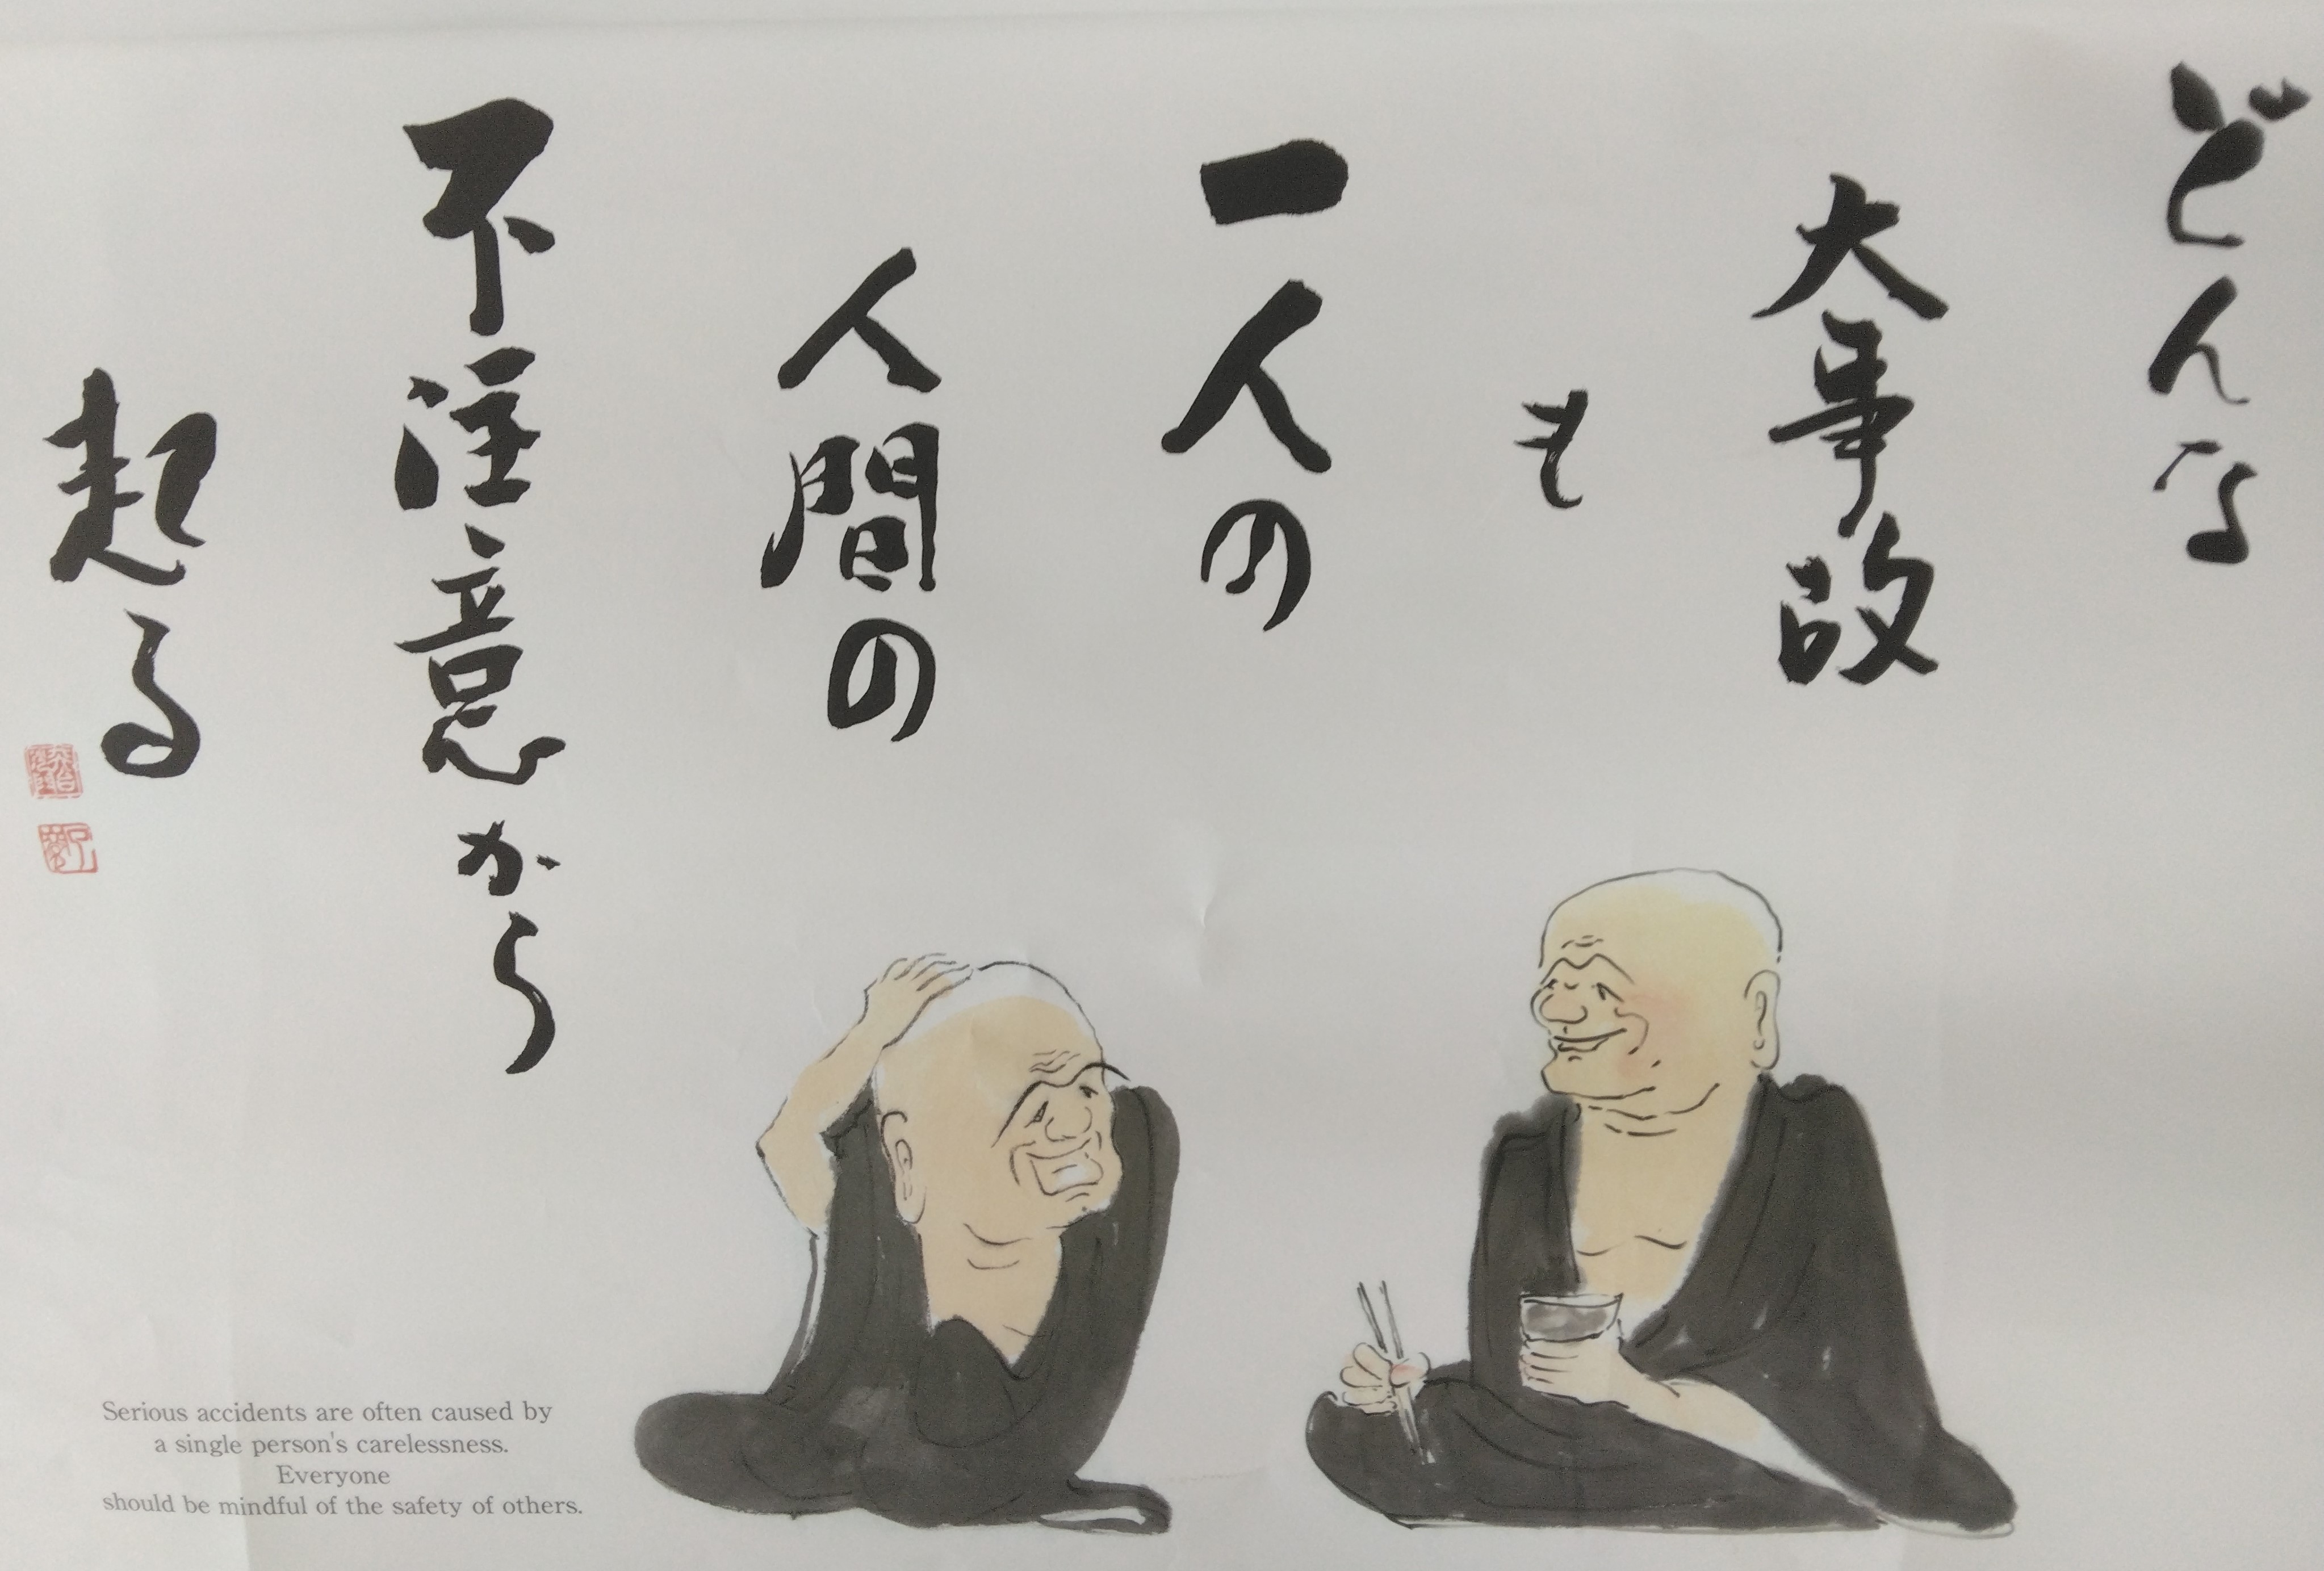 どんな
大事故
も
一人の
人間の
不注意から
起る
Serious accidents are often caused by
a single person's carelessness.
Everyone
should be mindful of the safety of others.